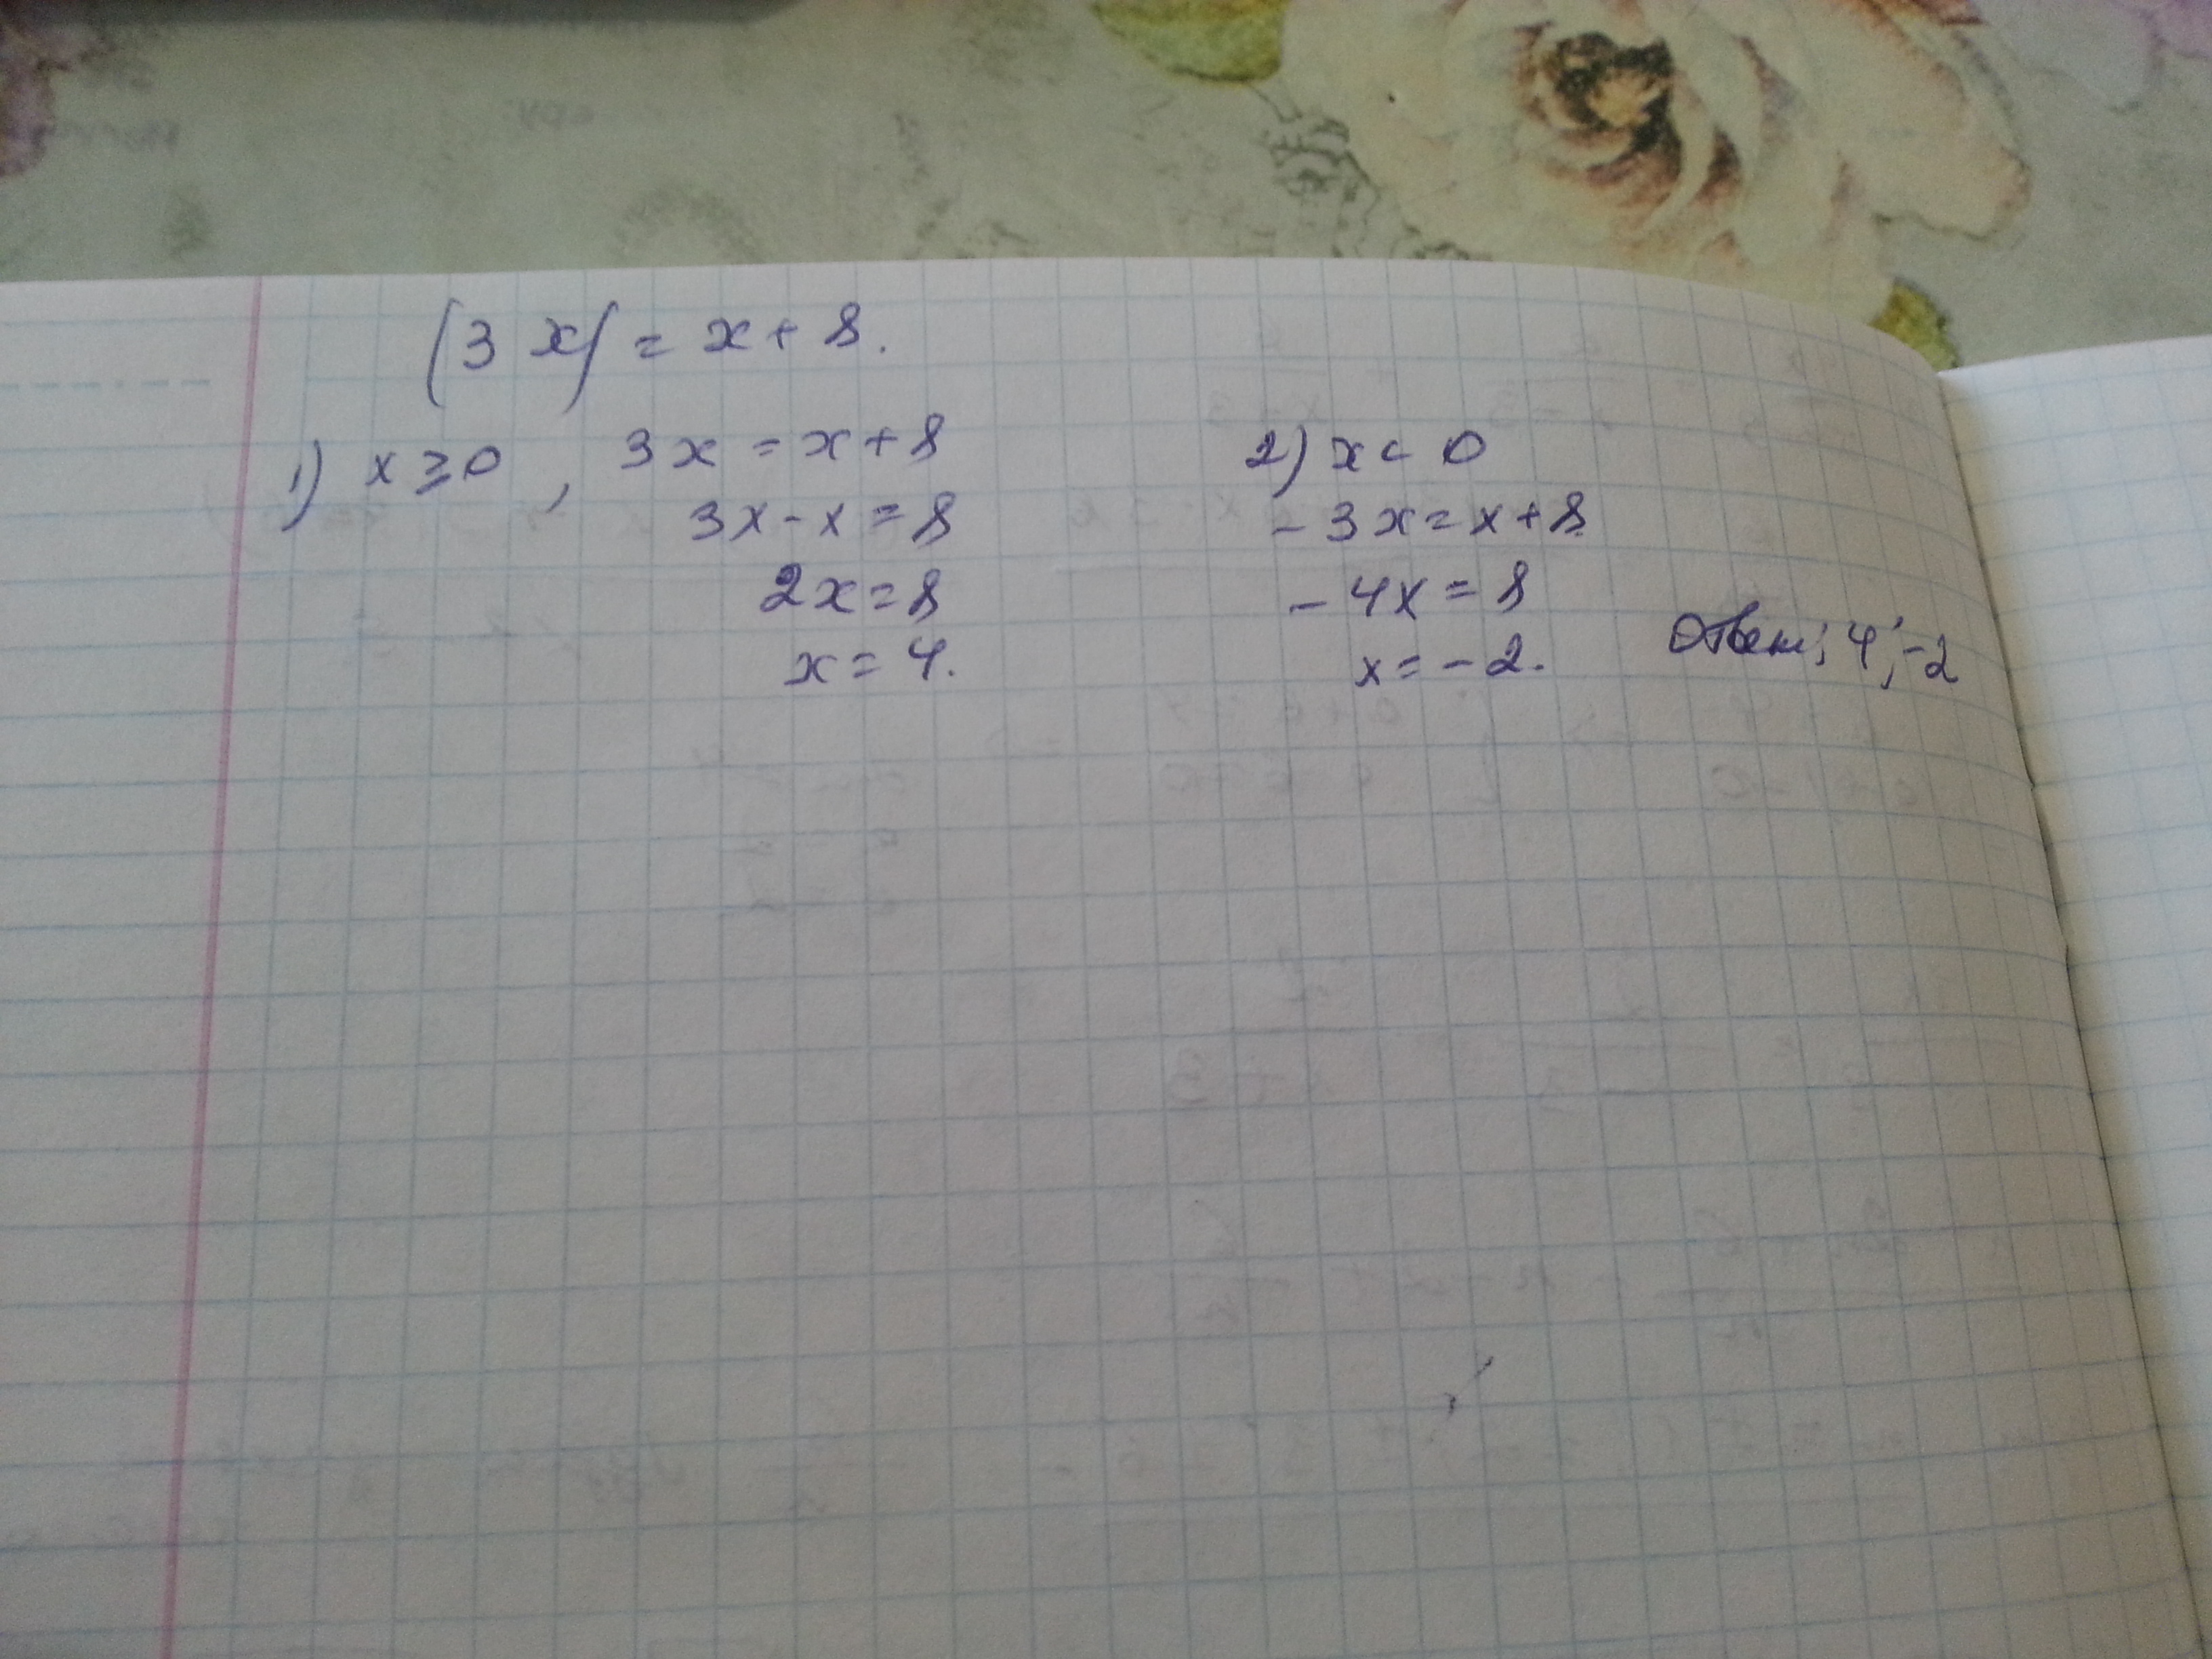 |3x| = x + 8.
1) x ≥ 0, 3x = x + 8
3x - x = 8
2x = 8
x = 4.
2) x < 0
- 3x = x + 8.
- 4x = 8
x = - 2.
Ответ: 4; -2